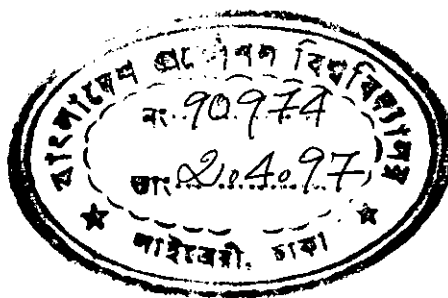 বাংলাদেশ প্রকৌশল বিশ্ববিদ্যালয়
নং 90974
তাং 2.4.97
লাইব্রেরী, ঢাকা